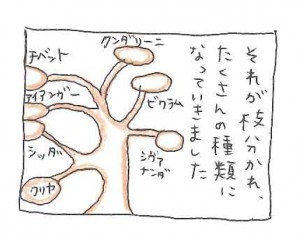 それが枝分かれ、
たくさんの種類に
なっていきました
クンダリーニ
チベット
ビクラム
アイアンガー
シヴァ
ナンダ
シッダ
クリヤ